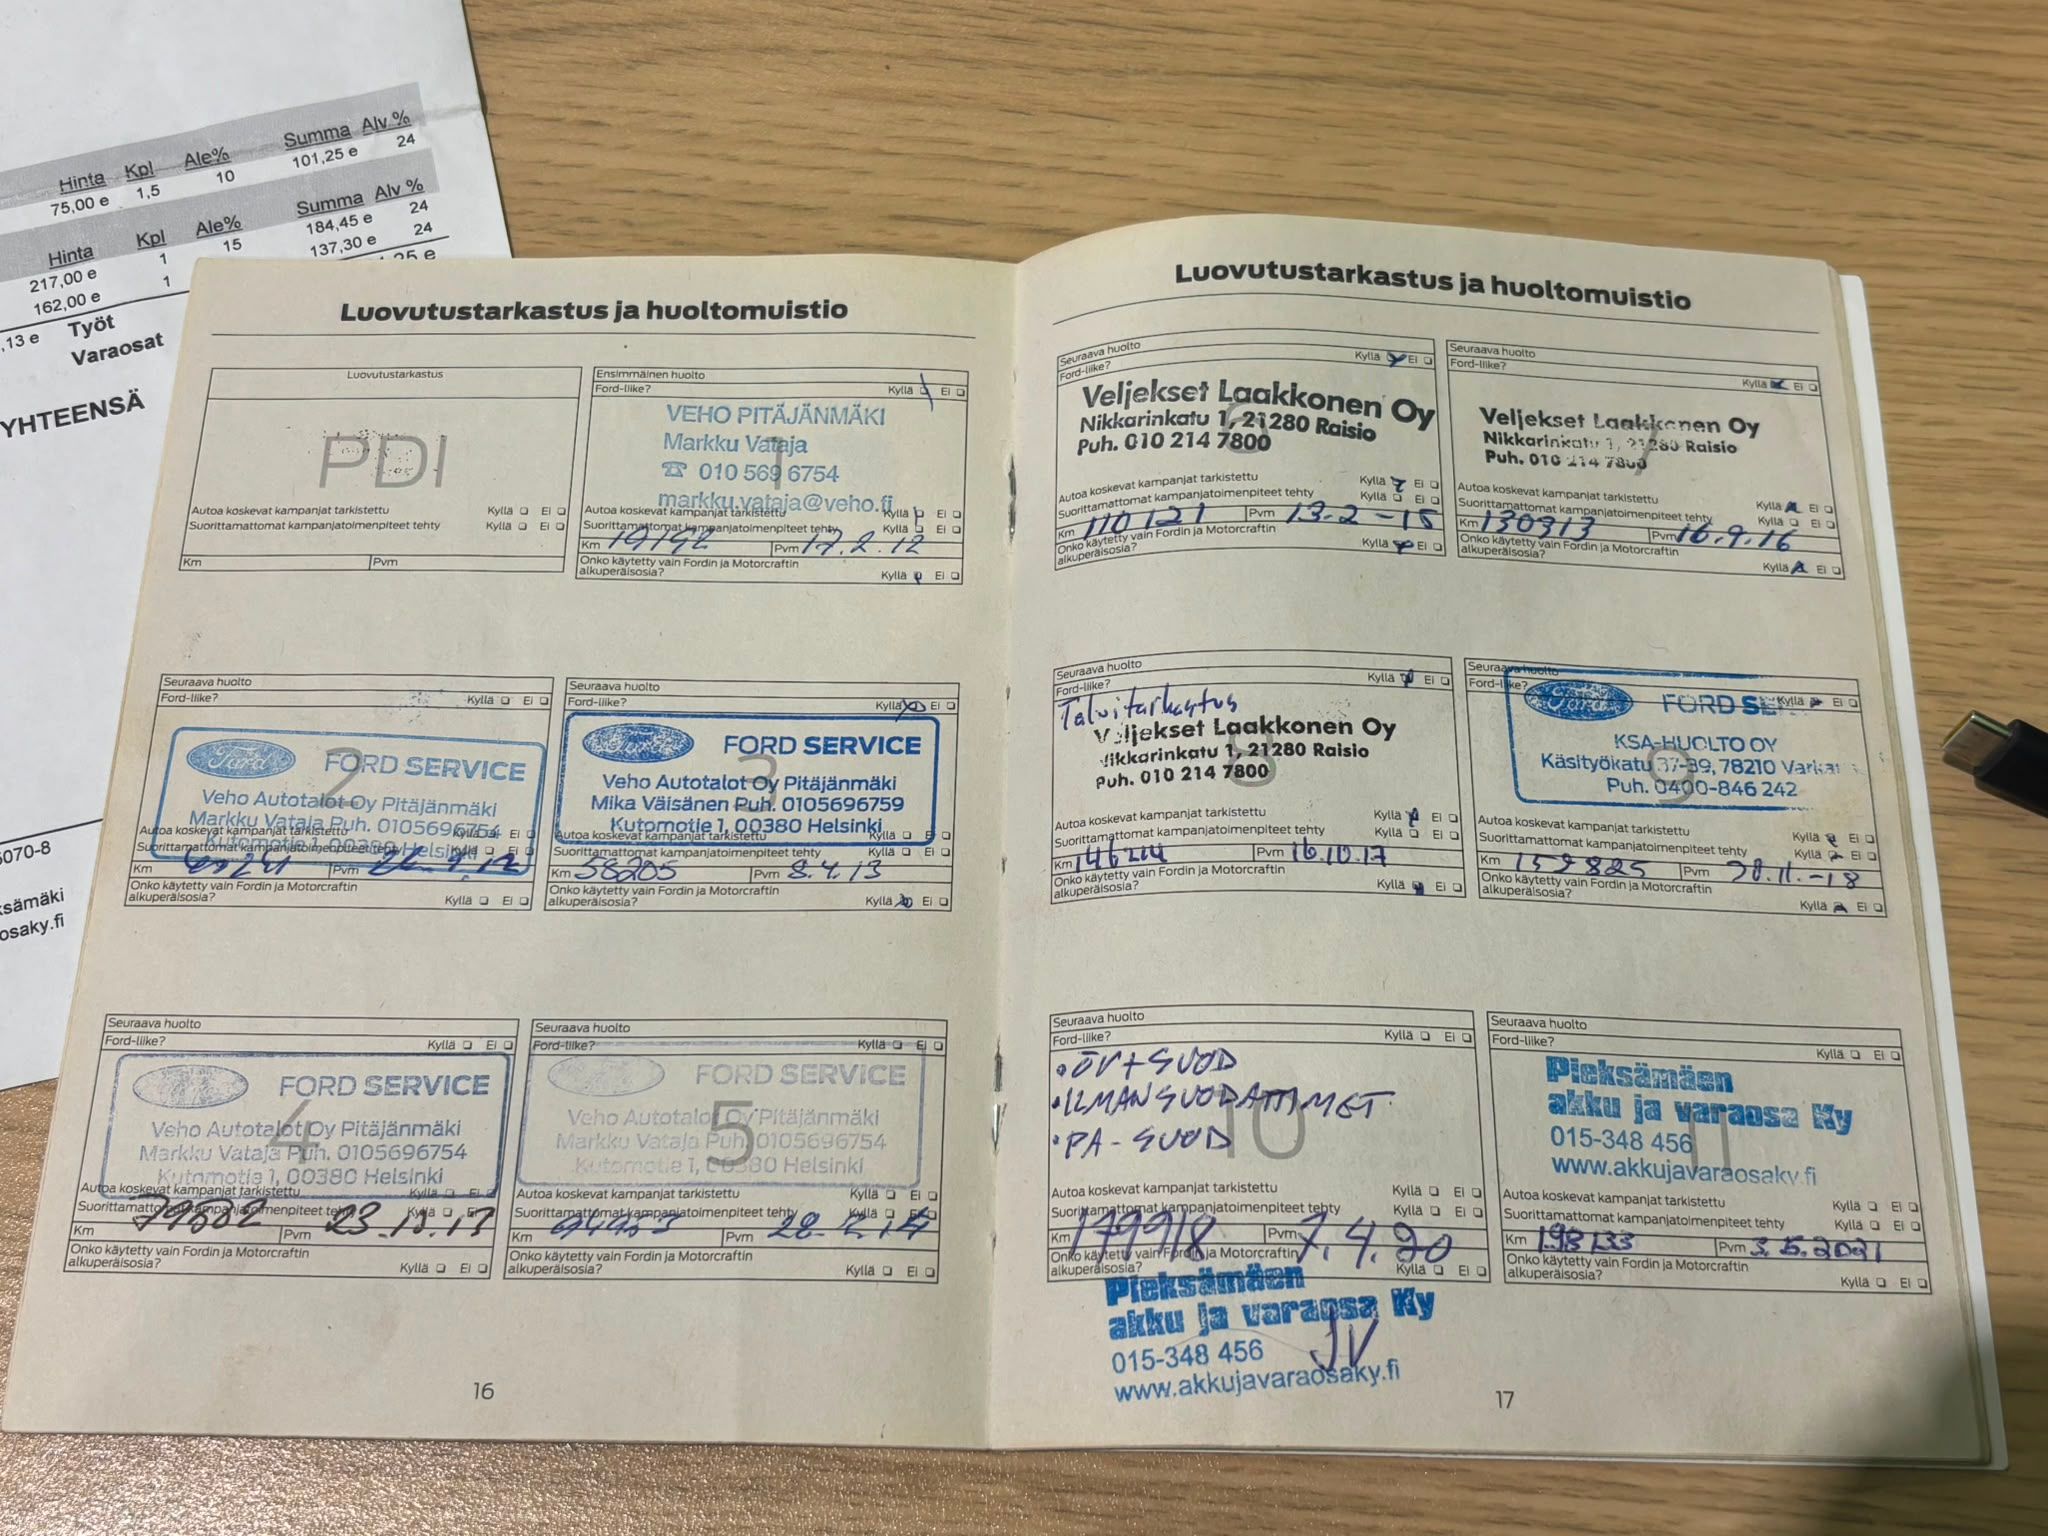 Hinta Kpl Ale% Summa Alv %
75,00 e 1,5 10 101,25 e 24
Hinta Kpl Ale% Summa Alv %
217,00 e 1 15 184,45 e 24
162,00 e 1 137,30 e 24
,13 e Työt
Varaosat
YHTEENSÄ
6070-8
Luovutustarkastus ja huoltomuistio
Luovutustarkastus
PDI
Autoa koskevat kampanjat tarkistettu Kyllä Ei
Suorittamattomat kampanjatoimenpiteet tehty Kyllä Ei
Km Pvm
Ensimmäinen huolto
Ford-liike? Kyllä Ei
1
VEHO PITÄJÄNMÄKI
Markku Vataja
☎ 010 569 6754
markku.vataja@veho.fi
Autoa koskevat kampanjat tarkistettu Kyllä Ei
Suorittamattomat kampanjatoimenpiteet tehty Kyllä Ei
Km 19192 Pvm 17.2.12
Onko käytetty vain Fordin ja Motorcraftin
alkuperäisosia? Kyllä Ei
Seuraava huolto
Ford-liike? Kyllä Ei
2
Ford FORD SERVICE
Veho Autotalot Oy Pitäjänmäki
Markku Vataja Puh. 0105696754
Kutomotie 1, 00380 Helsinki
Autoa koskevat kampanjat tarkistettu Kyllä Ei
Suorittamattomat kampanjatoimenpiteet tehty Kyllä Ei
Km Pvm
Onko käytetty vain Fordin ja Motorcraftin
alkuperäisosia? Kyllä Ei
Seuraava huolto
Ford-liike? Kyllä Ei
3
Ford FORD SERVICE
Veho Autotalot Oy Pitäjänmäki
Mika Väisänen Puh. 0105696759
Kutomotie 1, 00380 Helsinki
Autoa koskevat kampanjat tarkistettu Kyllä Ei
Suorittamattomat kampanjatoimenpiteet tehty Kyllä Ei
Km 58205 Pvm 8.4.13
Onko käytetty vain Fordin ja Motorcraftin
alkuperäisosia? Kyllä Ei
Seuraava huolto
Ford-liike? Kyllä Ei
4
FORD SERVICE
Veho Autotalot Oy Pitäjänmäki
Markku Vataja Puh. 0105696754
Kutomotie 1, 00380 Helsinki
Autoa koskevat kampanjat tarkistettu Kyllä Ei
Suorittamattomat kampanjatoimenpiteet tehty Kyllä Ei
Km Pvm 23.10.13
Onko käytetty vain Fordin ja Motorcraftin
alkuperäisosia? Kyllä Ei
Seuraava huolto
Ford-liike? Kyllä Ei
5
FORD SERVICE
Veho Autotalot Oy Pitäjänmäki
Markku Vataja Puh. 0105696754
Kutomotie 1, 00380 Helsinki
Autoa koskevat kampanjat tarkistettu Kyllä Ei
Suorittamattomat kampanjatoimenpiteet tehty Kyllä Ei
Km Pvm
Onko käytetty vain Fordin ja Motorcraftin
alkuperäisosia? Kyllä Ei
16
Luovutustarkastus ja huoltomuistio
Seuraava huolto
Ford-liike? Kyllä Ei
6
Veljekset Laakkonen Oy
Nikkarinkatu 1, 21280 Raisio
Puh. 010 214 7800
Autoa koskevat kampanjat tarkistettu Kyllä Ei
Suorittamattomat kampanjatoimenpiteet tehty Kyllä Ei
Km 110121 Pvm 13.2-15
Onko käytetty vain Fordin ja Motorcraftin
alkuperäisosia? Kyllä Ei
Seuraava huolto
Ford-liike? Kyllä Ei
7
Veljekset Laakkonen Oy
Nikkarinkatu 1, 21280 Raisio
Puh. 010 214 7800
Autoa koskevat kampanjat tarkistettu Kyllä Ei
Suorittamattomat kampanjatoimenpiteet tehty Kyllä Ei
Km 130313 Pvm 16.9.16
Onko käytetty vain Fordin ja Motorcraftin
alkuperäisosia? Kyllä Ei
Seuraava huolto
Ford-liike? Kyllä Ei
Talvitarkastus
8
Veljekset Laakkonen Oy
Nikkarinkatu 1, 21280 Raisio
Puh. 010 214 7800
Autoa koskevat kampanjat tarkistettu Kyllä Ei
Suorittamattomat kampanjatoimenpiteet tehty Kyllä Ei
Km 146214 Pvm 16.10.17
Onko käytetty vain Fordin ja Motorcraftin
alkuperäisosia? Kyllä Ei
Seuraava huolto
Ford-liike? Kyllä Ei
9
Ford FORD SE
KSA-HUOLTO OY
Käsityökatu 37-39, 78210 Varka
Puh. 0400-846 242
Autoa koskevat kampanjat tarkistettu Kyllä Ei
Suorittamattomat kampanjatoimenpiteet tehty Kyllä Ei
Km 159825 Pvm
Onko käytetty vain Fordin ja Motorcraftin
alkuperäisosia? Kyllä Ei
Seuraava huolto
Ford-liike? Kyllä Ei
10
• ÖV+SUOD
• ILMANSUODATTIMET
• PA-SUOD
Autoa koskevat kampanjat tarkistettu Kyllä Ei
Suorittamattomat kampanjatoimenpiteet tehty Kyllä Ei
Km 179918 Pvm 7.4.20
Onko käytetty vain Fordin ja Motorcraftin
alkuperäisosia? Kyllä Ei
Pieksämäen
akku ja varaosa Ky
015-348 456 JV
www.akkujavaraosaky.fi
Seuraava huolto
Ford-liike? Kyllä Ei
11
Pieksämäen
akku ja varaosa Ky
015-348 456
www.akkujavaraosaky.fi
Autoa koskevat kampanjat tarkistettu Kyllä Ei
Suorittamattomat kampanjatoimenpiteet tehty Kyllä Ei
Km 198133 Pvm 3.5.2021
Onko käytetty vain Fordin ja Motorcraftin
alkuperäisosia? Kyllä Ei
17